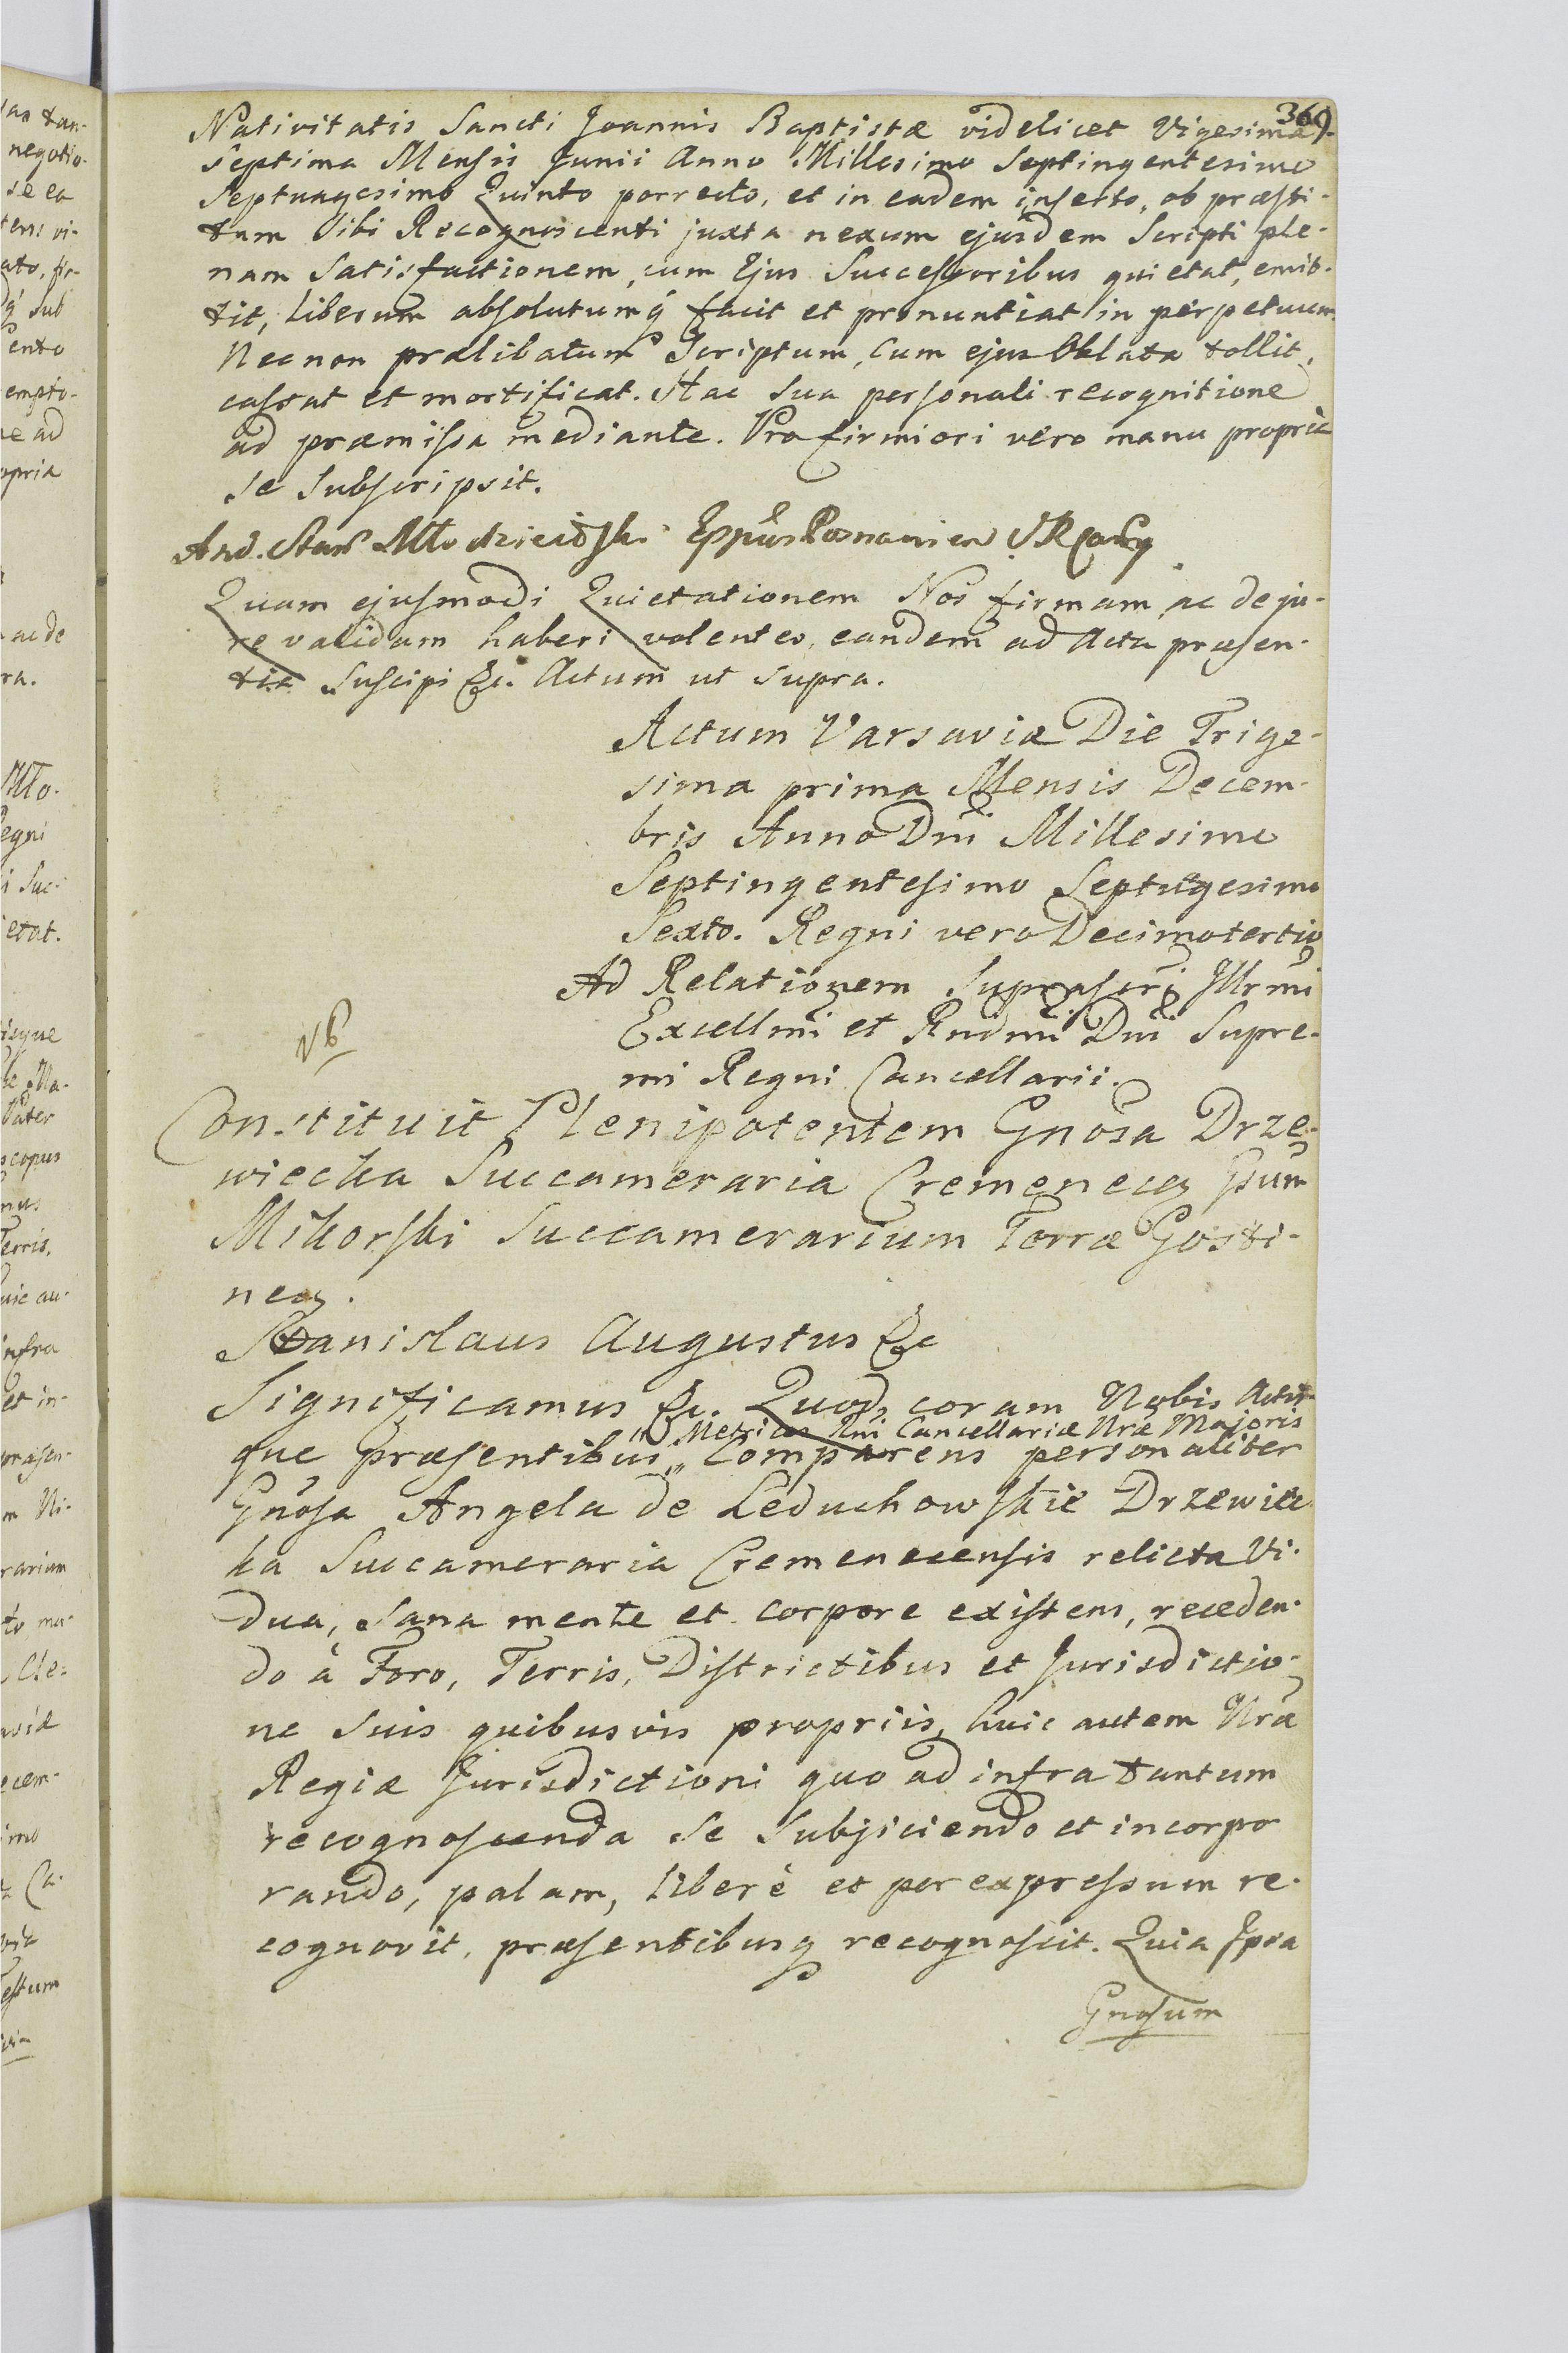 369
Nativitatis Sancti Joannis Baptistæ videlicet Vigesima
septima Mensis Junii Anno Millesimo Septingentesimo
Septuagesimo Quinto porrecto, et in eadem inserto, ob præsti-
tam sibi Recognoscenti juxta nexum ejusdem Scripti ple-
nam satisfactionem, cum Ejus Successoribus quietat, emit-
tit, liberum absolutumq́ facit et pronuntiat in perpetuum
Necnon prælibatum Scriptum, cum ejus Oblata tollit,
cassat et mortificat. Hac sua personali recognitione
ad præmissa mediante. Pro firmiori vero manu propria
se subscripsit.
And. Stan. Młodzieiowski Eppus Posnanien S R Canc
Quam ejusmodi Quietationem Nos firmam ac de ju-
re validam haberi volentes, eandem ad Acta præsen-
tia suscipi &c. Actum ut supra.
Actum Varsaviæ Die Trige-
sima prima Mensis Decem-
bris Anno Dni Millesimo
Septingentesimo Septuagesimo
Sexto. Regni vero Decimotertio
Ad Relationem Suprascri Illrmi
Excellmi et Rndmi Dni Supre-
mi Regni Cancellarii.
NB
Constituit Plenipotentem Gnosa Drze-
wiecka Succameraria Cremenecen Gsum
Mikorski Succamerarium Terræ Gosti-
nen.
Stanislaus Augustus &c
Significamus &c. Quod coram Nobis Actis-
que præsentibus „ Metrices Rni Cancellariæ Nræ Majoris „ Comparens personaliter
Gnosa Angela de Leduchowskie Drzewiec
ka Succameraria Cremenecensis relicta Vi-
dua, sana mente et corpore existens, receden-
do à Foro, Terris, Districtibus et Jurisdictio-
ne suis quibusvis propriis, huic autem Nræ
Regiæ Jurisdictioni quo ad infra tantum
recognoscenda se subjiciendo et incorpo
rando, palam, liberè et per expressum re-
cognovit, præsentibusq recognoscit. Quia Ipsa
Gnosum